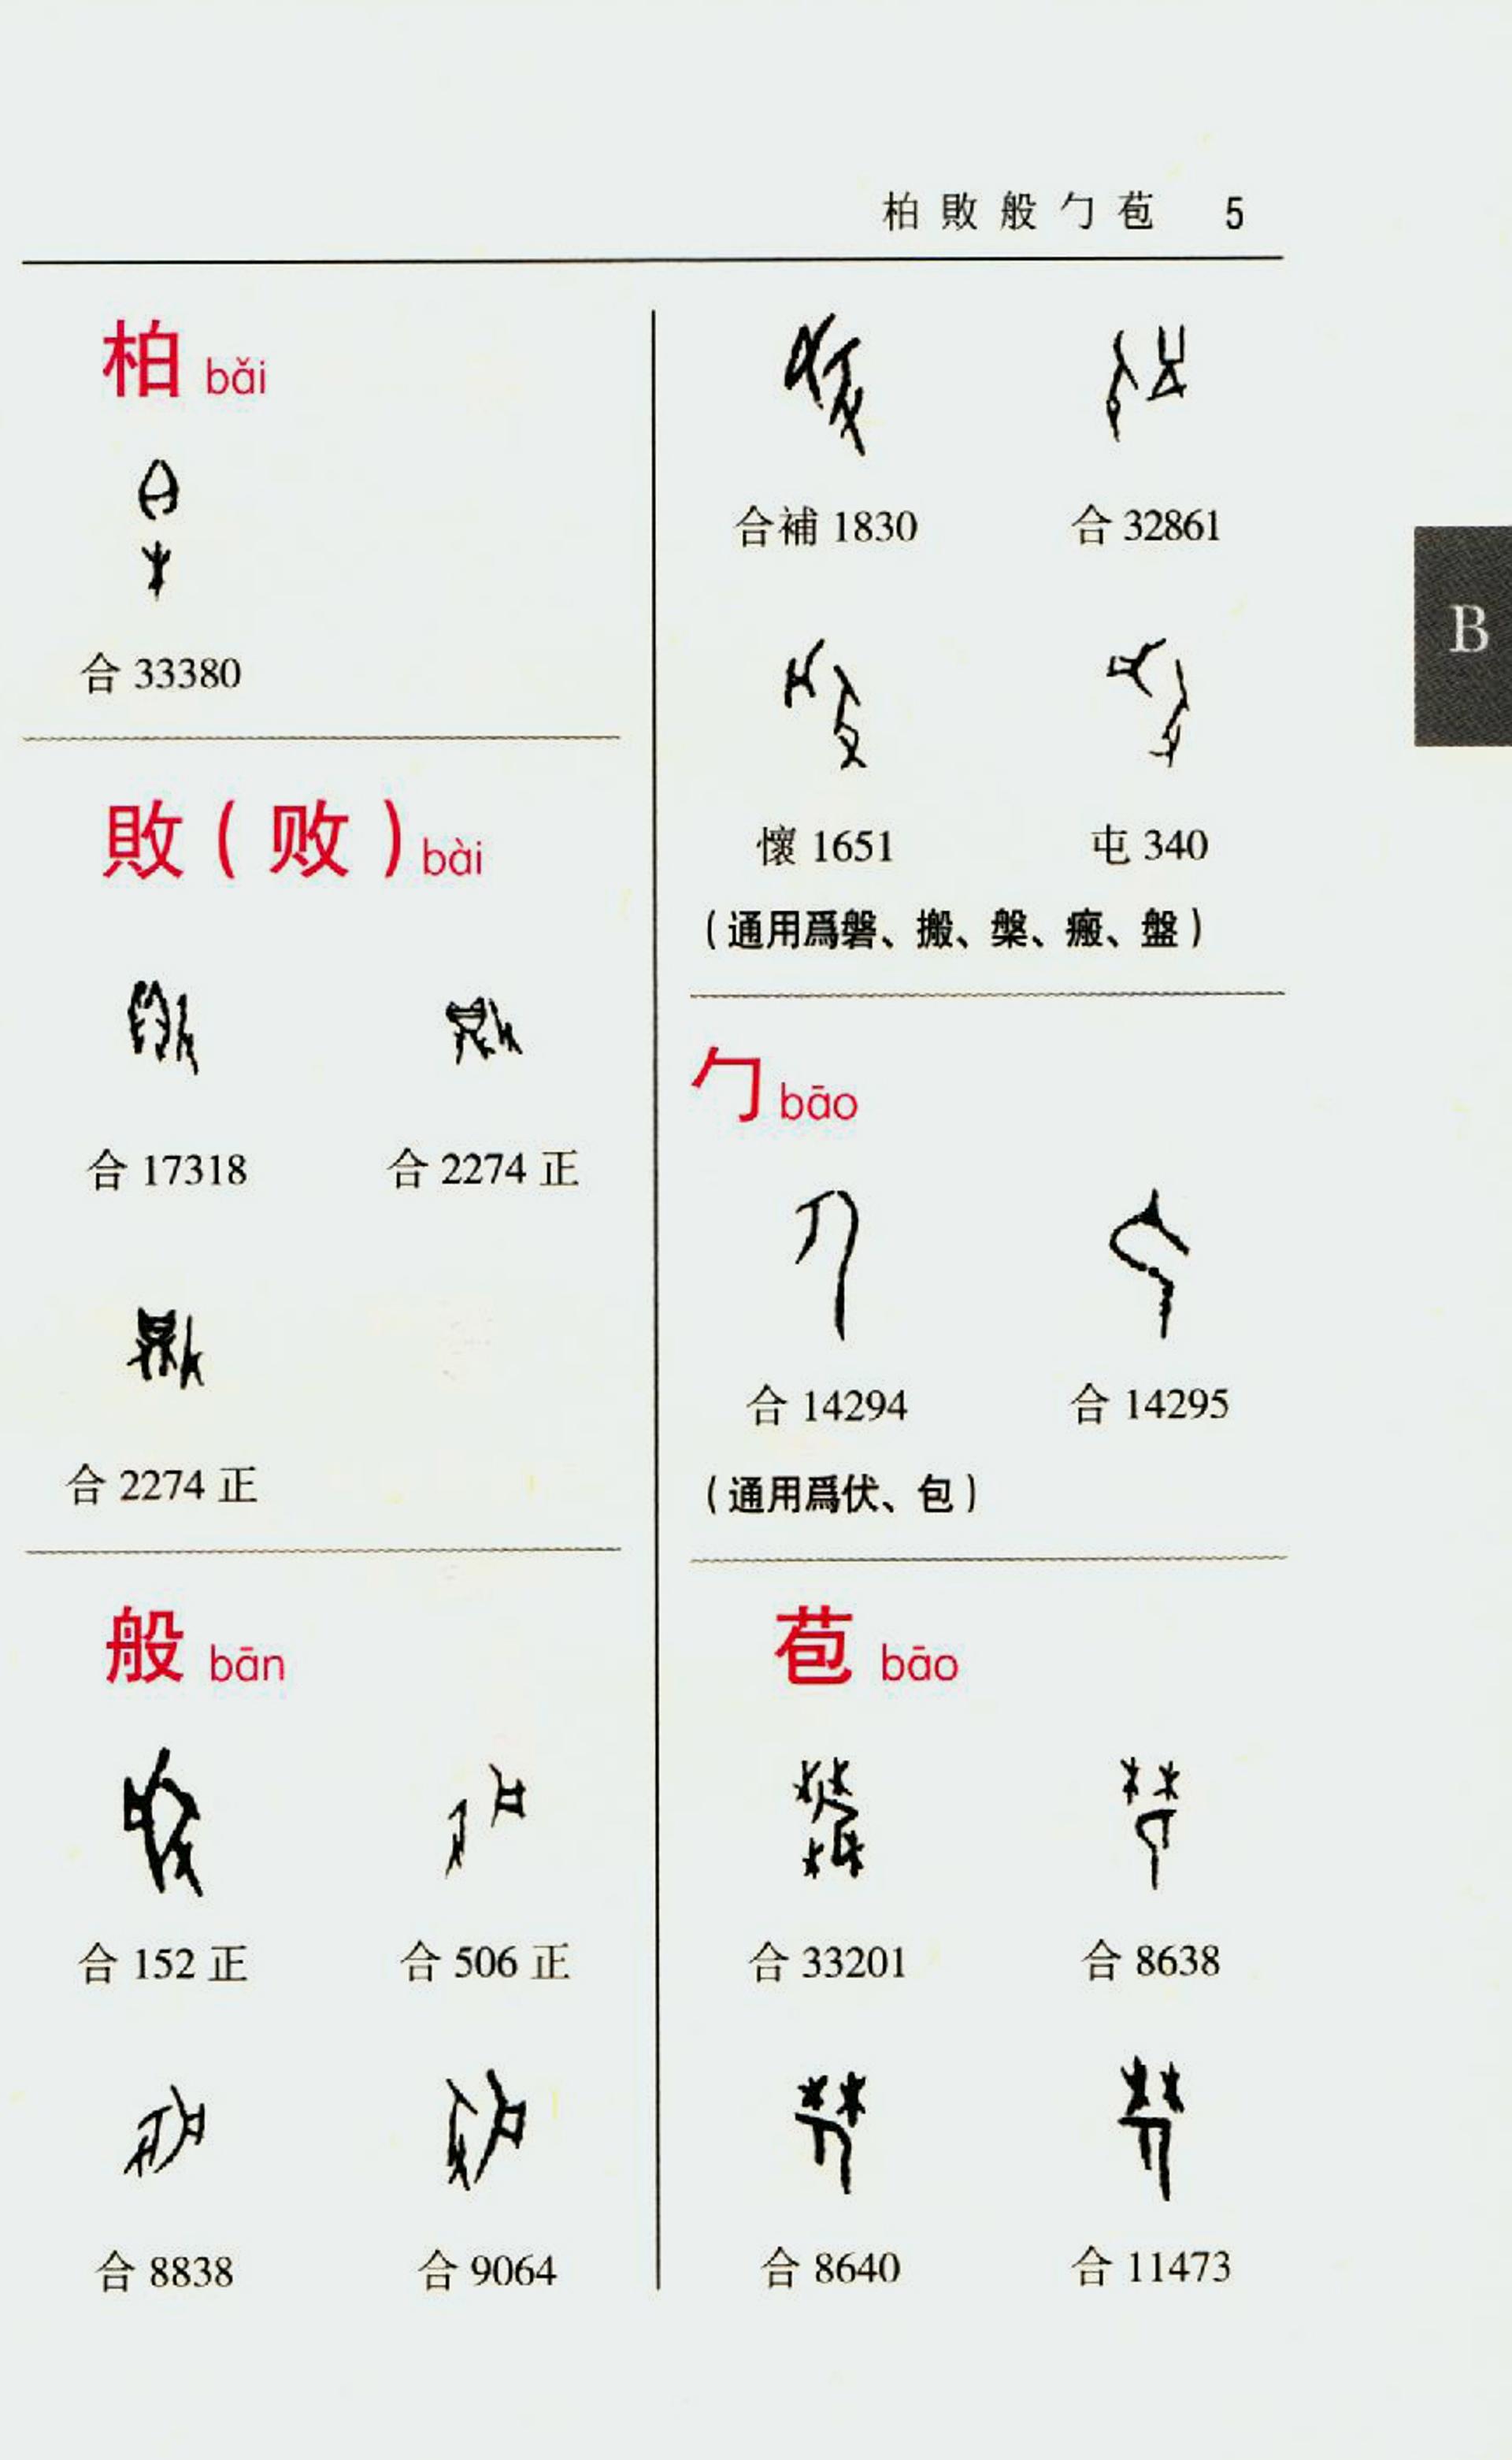 柏敗般勹苞 5
柏 bǎi
合 33380
敗(败)bài
合 17318 合 2274 正
合 2274 正
般 bān
合 152 正 合 506 正
合 8838 合 9064
合補 1830 合 32861
懷 1651 屯 340
(通用爲磐、搬、槃、瘢、盤)
勹 bāo
合 14294 合 14295
(通用爲伏、包)
苞 bāo
合 33201 合 8638
合 8640 合 11473
B